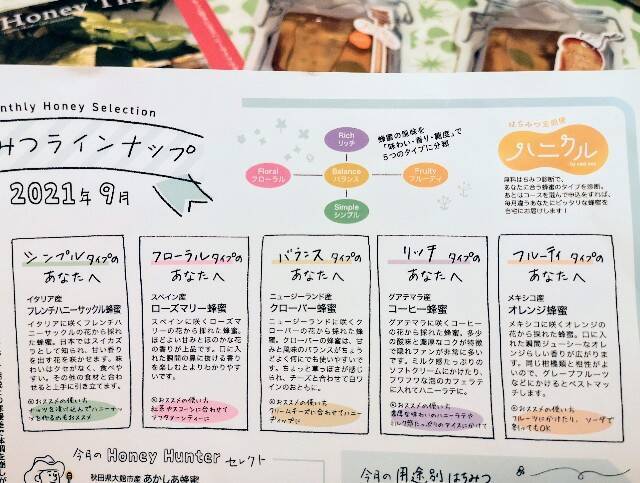 Honey Th
onthly Honey Selection
みつラインナップ
2021年9月
Rich
リッチ
Floral
フローラル
Balance
バランス
Fruity
フルーティ
Simple
シンプル
蜂蜜の風味を
「味わい・香り・糖度」で
5つのタイプに分類
はちみつ定期便
ハニクル
by
原料はちみつ診断で、
あなたに合う蜂蜜のタイプを診断。
あとはコースを選んで申込をすれば、
毎月違うあなたにピッタリな蜂蜜を
ご自宅にお届けします!
シンプルタイプの
あなたへ
イタリア産
フレンチハニーサックル蜂蜜
イタリアに咲くフレンチハ
ニーサックルの花から採れ
た蜂蜜。日本ではスイカズ
ラとして知られ、甘い香り
を出す花を咲かせます。味
わいはクセがなく、食べや
すい。その他の食材と合わ
せると上手に引き立てます。
◎おススメの使い方
ナッツを漬け込んでハニーナッ
ツを作るのもおススメ
フローラルタイプの
あなたへ
スペイン産
ローズマリー蜂蜜
スペインに咲くローズマ
リーの花から採れた蜂蜜。
ほどよい甘みとほのかな花
の香りが上品です。口に入
れた瞬間の鼻に抜ける香り
を楽しむとよりわかりやす
いです。
◎おススメの使い方
紅茶やスコーンに合わせて
アフタヌーンティーに
バランスタイプの
あなたへ
ニュージーランド産
クローバー蜂蜜
ニュージーランドに咲くク
ローバーの花から採れた蜂
蜜。クローバーの蜂蜜は、甘
みと風味のバランスがちょう
どよく何にでも使いやすいで
す。ちょっと草っぽさが感じ
られ、チーズと合わせて白ワ
インのおともに。
◎おススメの使い方
クリームチーズに合わせてハニー
ディップに
リッチタイプの
あなたへ
グアテマラ産
コーヒー蜂蜜
グアテマラに咲くコーヒー
の花から採れた蜂蜜。多少
の酸味と濃厚なコクが特徴
で隠れファンが非常に多い
です。ミルク感たっぷりの
ソフトクリームにかけたり、
フワフワな泡のカフェラテ
に入れてハニーラテに。
◎おススメの使い方
濃厚な味わいのハニーラテや
ミルク感たっぷりのアイスにかけて
フルーティタイプの
あなたへ
メキシコ産
オレンジ蜂蜜
メキシコに咲くオレンジの
花から採れた蜂蜜。口に入
れた瞬間ジューシーなオレ
ンジらしい香りが広がりま
す。同じ柑橘類と相性がよ
いので、グレープフルーツ
などにかけるとベストマッ
チします。
◎おススメの使い方
フルーツにかけたり、ソーダで
割ってもOK
今月のHoney Hunterセレクト
秋田県大館市産 あかしあ蜂蜜
今月の用途別はちみつ